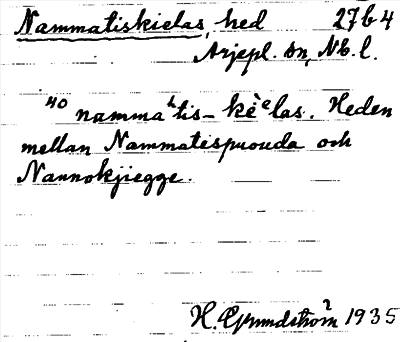 Nammatiskielas, hed 27b4
Arjepl. sn, Nb. l.
40 nammaʰtis-kèᵉlas. Heden
mellan Nammatispuouda och
Nannokjiegge.
H. Grundström 1935